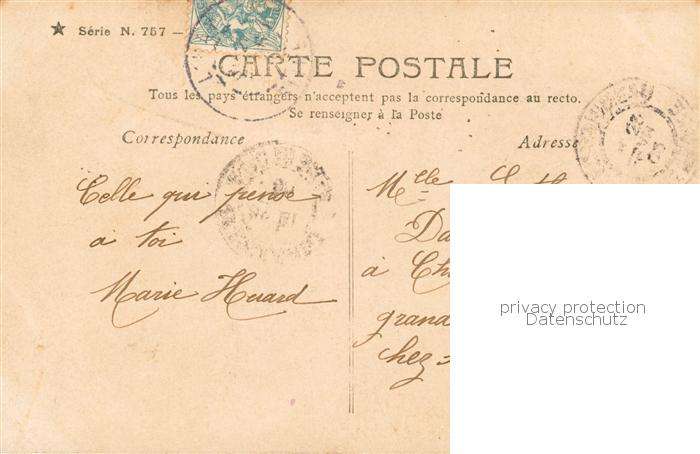 ★ Série N. 757 –
CARTE POSTALE
Tous les pays étrangers n'acceptent pas la correspondance au recto.
Se renseigner à la Poste
Correspondance
Celle qui pense
a toi
Marie Huard
Adresse
Mlle
Da
à Ch
grand
chez
privacy protection
Datenschutz